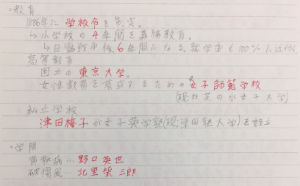 ・教育
に学校令を制定。
小学校の4年間を義務教育。
6年間になる。就学率も100%に近付く
高等教育
国立の東京大学。
女性教員を養成するための女子師範学校
(現お茶の水女子大学)
私立学校
津田梅子が女子英学塾(現津田塾大学)を創立
・学問
黄熱病→野口英世
破傷風→北里柴三郎